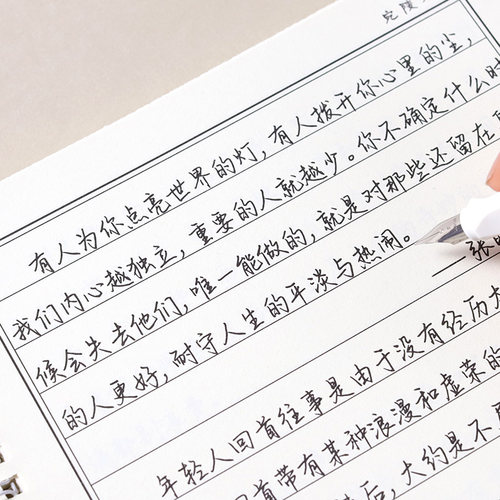 宛陵
有人为你点亮世界的灯，有人拨开你心里的尘，
我们内心越独立，重要的人就越少。你不确定什么时
候会失去他们，唯一能做的，就是对那些还留在
的人更好，耐守人生的平淡与热闹。
——张
年轻人回首往事是由于没有经历
回首带有某种浪漫和虚荣的
后，大约是不